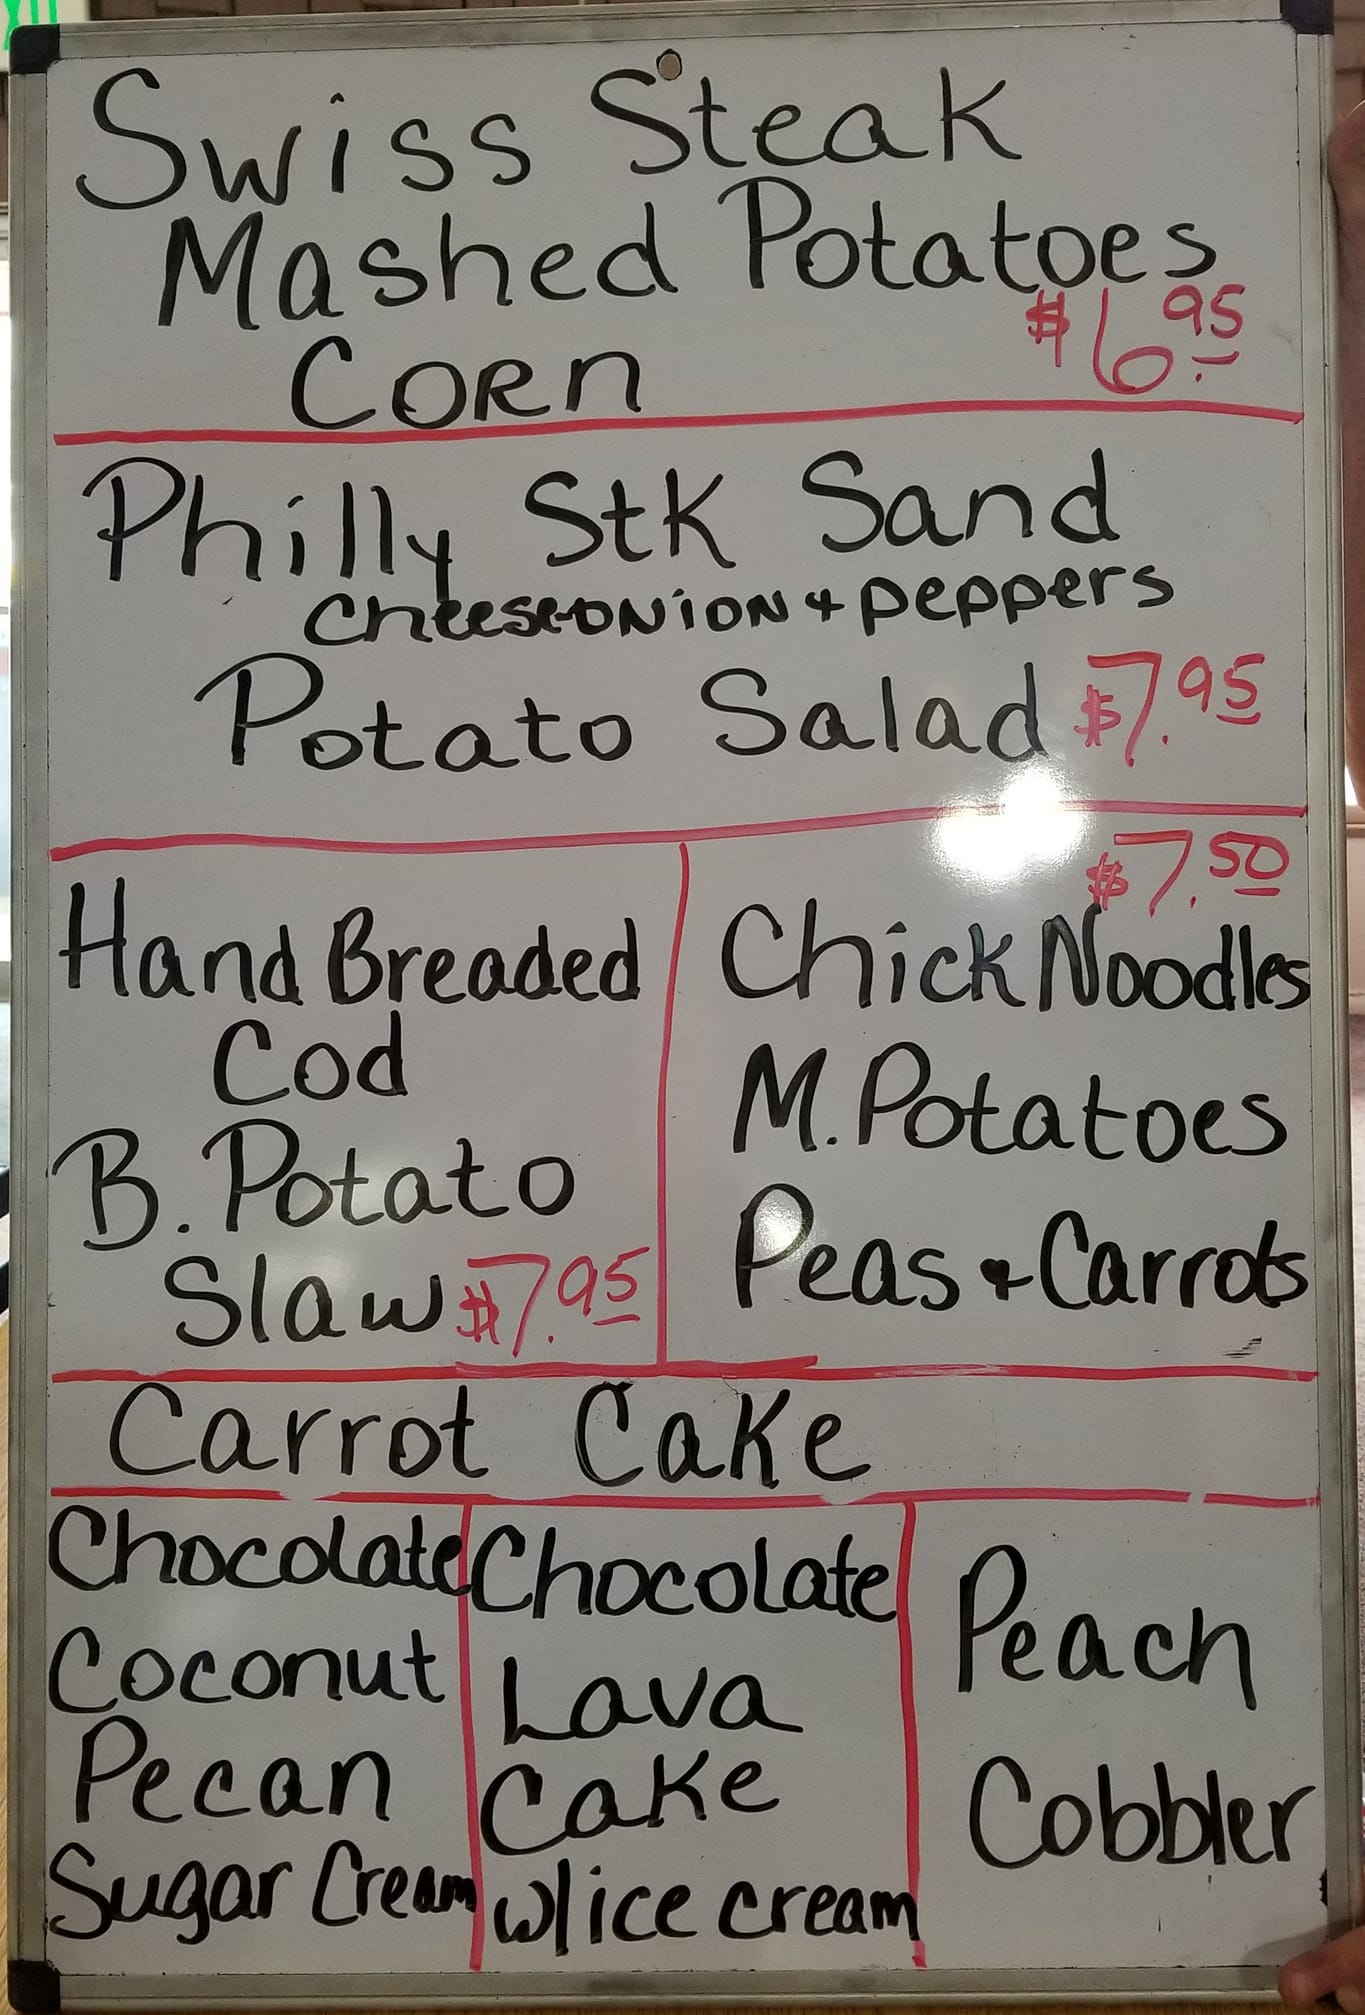 Swiss Steak
Mashed Potatoes
$6.95
Corn
Philly Stk Sand
Cheese onion + peppers
Potato Salad $7.95
Hand Breaded
Cod
B. Potato
Slaw $7.95
$7.50
Chick Noodles
M. Potatoes
Peas + Carrots
Carrot Cake
Chocolate
Coconut
Pecan
Sugar Cream
Chocolate
Lava
Cake
w/ice cream
Peach
Cobbler